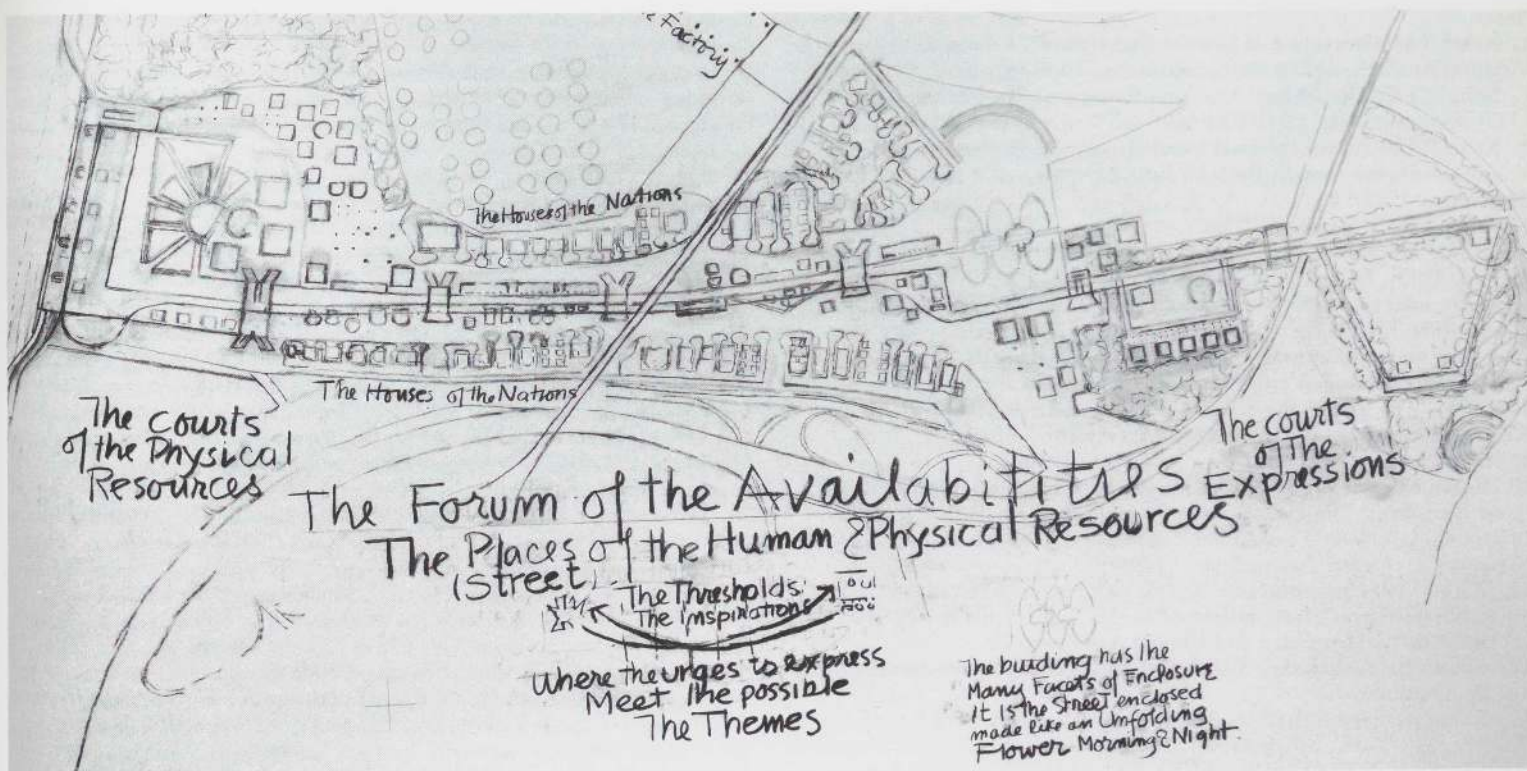 Factory.
The Houses of the Nations
The Houses of the Nations
The Courts
of the Physical
Resources
The courts
of The
Expressions
The Forum of the Availabitities
The Places of the Human & Physical Resources
(Street)
The Thresholds:
The inspirations
Where the urges to express
Meet the possible
The Themes
The buiding has the
Many Facets of Enclosure
It Is the Street enclosed
made like an Unfolding
Flower Morning & Night.